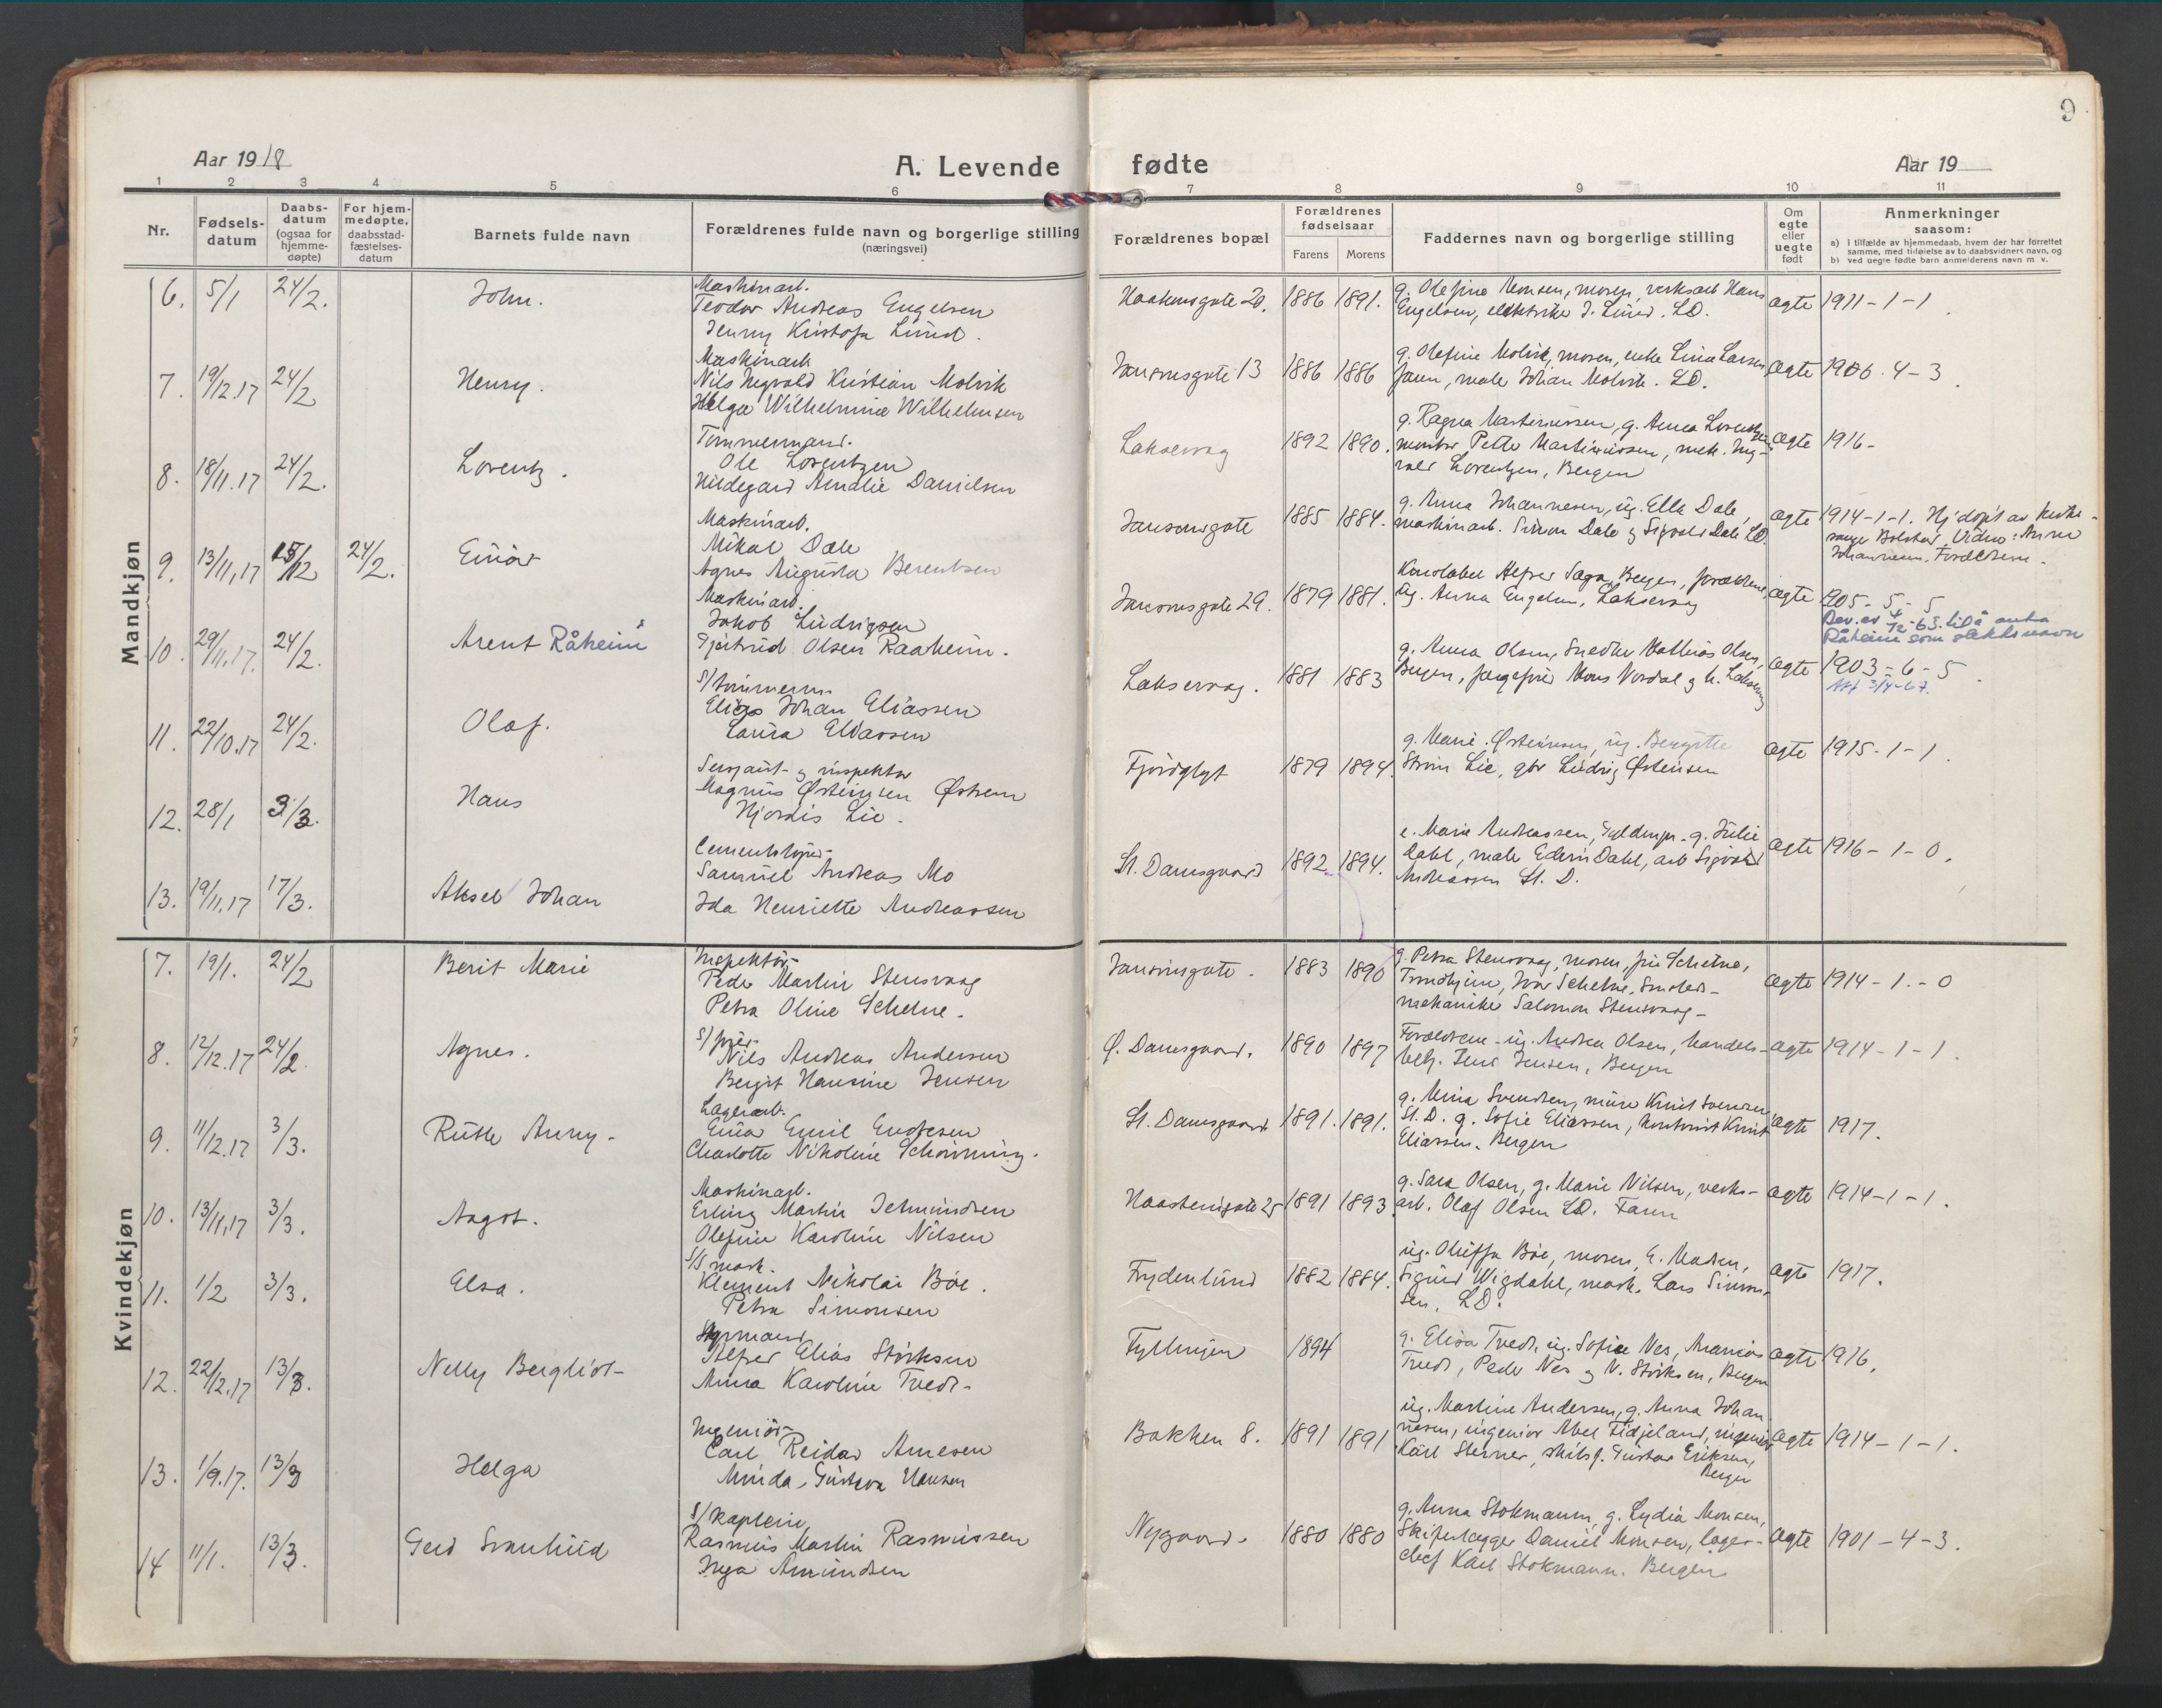 9
Aar 1918
A. Levende fødte
Aar 19
1 2 3 4 5 6 7 8 9 10 11
Nr.
Fødsels-
datum
Daabs-
datum
(ogsaa for
hjemme-
døpte)
For hjem-
medøpte,
daabsstad-
fæstelses-
datum
Barnets fulde navn
Forældrenes fulde navn og borgerlige stilling
(næringsvei)
Forældrenes bopæl
Forældrenes
fødselsaar
Farens
Morens
Faddernes navn og borgerlige stilling
Om
egte
eller
uegte
født
Anmerkninger
saasom:
a) I tilfælde av hjemmedaab, hvem der har forrettet
samme, med tilføielse av to daabsvidners navn, og
b) ved uegte fødte barn anmelderens navn m. v.
Mandkjøn
6. 5/1 24/2. John.
Maskinarb.
Teodor Andreas Engelsen
Jenny Kristofa Lund.
Haakonsgate 20. 1886 1891.
g. Olefine Monsen, moren, verksarb Hans
Engelsen, elektriker J. Lund. LD.
ægte 1911-1-1
7. 19/12.17 24/2 Henry.
Maskinarb
Nils Ingvald Kristian Molvik
Helga Wilhelmine Wilhelmsen
Jansonsgate 13 1886 1886
g. Olefine Molvik, moren, enke Lina Larsen
faren, maler Johan Molvik. LD.
ægte 1906-4-3
8. 18/11.17 24/2. Lorentz.
Tømmermand.
Ole Lorentzen
Hildegard Amalie Danielsen
Laksevaag 1892 1890.
g. Ragna Martinussen, g. Anna Lorentzen
montør Peder Martinussen, mek. Ing-
vald Lorentzen, Bergen
ægte 1916-
9. 13/11,17 15/12 24/2. Einar
Maskinarb.
Mikal Dale
Agnes Augusta Berentsen
Jansonsgate 1885 1884.
g. Anna Johannesen, ug. Ella Dale,
maskinarb. Simon Dale og Sigvald Dale LD.
ægte 1914-1-1. Hj døpt av kirke-
sanger Bolstad. Vidne: Anna
Johannesen, Forældrene.
10. 29/11,17. 24/2. Arent Råheim
Maskinarb.
Jakob Ludvigsen
Gjertrud Olsen Raaheim.
Jansonsgate 29. 1879 1881.
Konstabel Alfred Saga, Bergen, forældrene,
ug. Anna Engelsen, Laksevaag
ægte 1905-5-5
Bev. av 4/12-63 til å anta
Råheim som slektsnavn
11. 22/10.17 24/2. Olaf.
S/tømmerm.
Elias Johan Eliassen
Laura Eldassen
Laksevaag. 1881 1883
g. Anna Olsen, Snedker Mathias Olsen,
Bergen, Mons Vordal g h. Laksevaag
ægte 1903-6-5
Att 3/4-67.
12. 28/1 3/3. Hans
Sersjant- og inspektør
Magnus Østensen Østrem
Hjørdis Lie.
Fjordglyt 1879 1894.
g. Marie Østensen, ug. Bergitte
Strøm Lie, gbr Ludvig Østensen
ægte 1915-1-1
13. 19/11.17 17/3. Aksel Johan
Cementstøper-
Samuel Andreas Mo
Ida Henriette Andreassen
St. Damsgaard 1892 1894.
e. Marie Andreassen, g. Julie
Dahl, maler Edvin Dahl, arb Sigvald
Andreassen St. D.
ægte 1916-1-0.
Kvindekjøn
7. 19/1. 24/2 Berit Marie
Inspektør-
Peder Martin Stensvaag
Petra Oline Schetne.
Jansonsgate. 1883 1890
g. Petra Stensvaag, moren, fru Schetne,
Trondhjem, Ivar Schetne, Smøla-
mekaniker Salomon Stensvaag-
ægte 1914-1-0
8. 12/12.17 24/2. Agnes.
Nils Andreas Andersen
Bergit Hansine Jensen
Ø. Damsgaard. 1890 1897
Forældrene- ug. Andrea Olsen, handels-
betj. Jens Jensen, Bergen
ægte 1914-1-1.
9. 11/12.17 3/3. Ruth Anny-
Lagerarb.
Einar Emil Endresen
Charlotte Nikoline Schønning.
St. Damsgaard 1891. 1891.
g. Mina Svendsen, murer Knut Svendsen,
St. D. g. Sofie Eliassen, kontorist Knut
Eliassen. Bergen
ægte 1917.
10. 13/11,17 3/3. Aagot.
Maskinarb.
Erling Martin Jetmundsen
Olefine Karoline Nilsen
Haasteinsgate 25 1891 1893
g. Sara Olsen, g. Marie Nilsen, verks-
arb. Olaf Olsen LD. Faren
ægte 1914-1-1.
11. 1/2 3/3. Elsa.
S/S mask.
Klement Nikolai Bøe.
Petra Simonsen
Frydenlund 1882 1884.
ug. Oluffa Bøe, moren, E. Madsen,
Sigurd Wigdahl, mask. Lars Simon-
sen, LD.
ægte 1917.
12. 22/2.17 13/3. Nelly Bergliot-
Styrmand
Alfred Elias Størksen
Anna Karoline Tvedt-
Fyllingen 1894
g. Elisa Tvedt, ug. Sofie Nes, Marius
Tvedt, Peder Nes og N. Størksen, Bergen
ægte 1916.
13. 1/9.17. 13/3 Helga
Ingeniør-
Carl Reidar Arnesen
Minda Gustava Hansen
Bakken 8. 1891 1891
ug. Martine Andersen, g. Anna Johan
nesen, ingeniør Abel Fidjeland, ingeniør
Karl Sterner, skibsf. Gustav Eriksen,
Bergen
ægte 1914-1-1.
14 11/1. 13/3. Gerd Svanhild
S/kaptein
Rasmus Martin Rasmussen
Inga Amundsen
Nygaard. 1880 1880
g. Anna Stokmann, g. Lydia Monsen,
Skifertægger Daniel Monsen, lager-
chef Karl Stokmann. Bergen
ægte 1901-4-3.